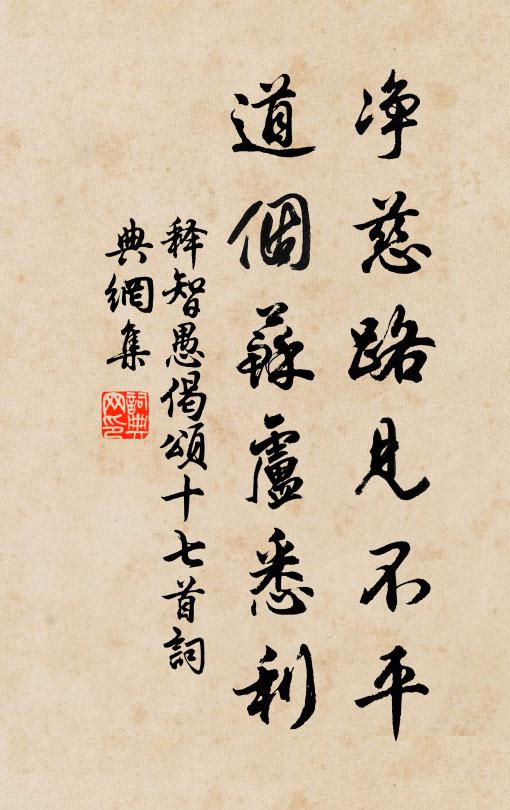 净慈路见不平
道個蘇盧悉利
释智愚偈頌十七首詞
典網集
詞典
网印